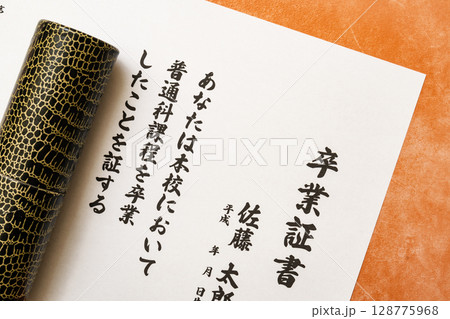 卒業証書
佐藤 太郎
平成 年 月 日
あなたは本校において
普通科課程を卒業
したことを証する
128775968